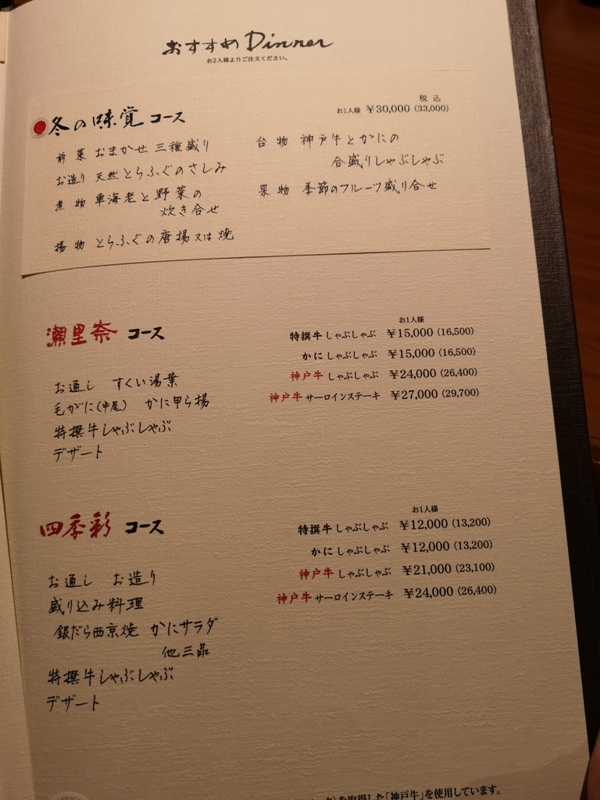 おすすめ Dinner
お2人様よりご注文ください。
税込
お1人様 ¥30,000 (33,000)
冬の味覚 コース
前菜 おまかせ三種盛り
お造り 天然とらふぐのさしみ
煮物 車海老と野菜の
炊き合せ
揚物 とらふぐの唐揚又は焼
台物 神戸牛とかにの
合盛りしゃぶしゃぶ
果物 季節のフルーツ盛り合せ
瀬里奈 コース
お通し すくい湯葉
毛がに(中尾) かに甲ら揚
特撰牛しゃぶしゃぶ
デザート
お1人様
特撰牛 しゃぶしゃぶ ¥15,000 (16,500)
かに しゃぶしゃぶ ¥15,000 (16,500)
神戸牛 しゃぶしゃぶ ¥24,000 (26,400)
神戸牛 サーロインステーキ ¥27,000 (29,700)
四季彩 コース
お通し お造り
盛り込み料理
銀だら西京焼 かにサラダ
他三品
特撰牛しゃぶしゃぶ
デザート
お1人様
特撰牛 しゃぶしゃぶ ¥12,000 (13,200)
かに しゃぶしゃぶ ¥12,000 (13,200)
神戸牛 しゃぶしゃぶ ¥21,000 (23,100)
神戸牛 サーロインステーキ ¥24,000 (26,400)
を取得した「神戸牛」を使用しています。